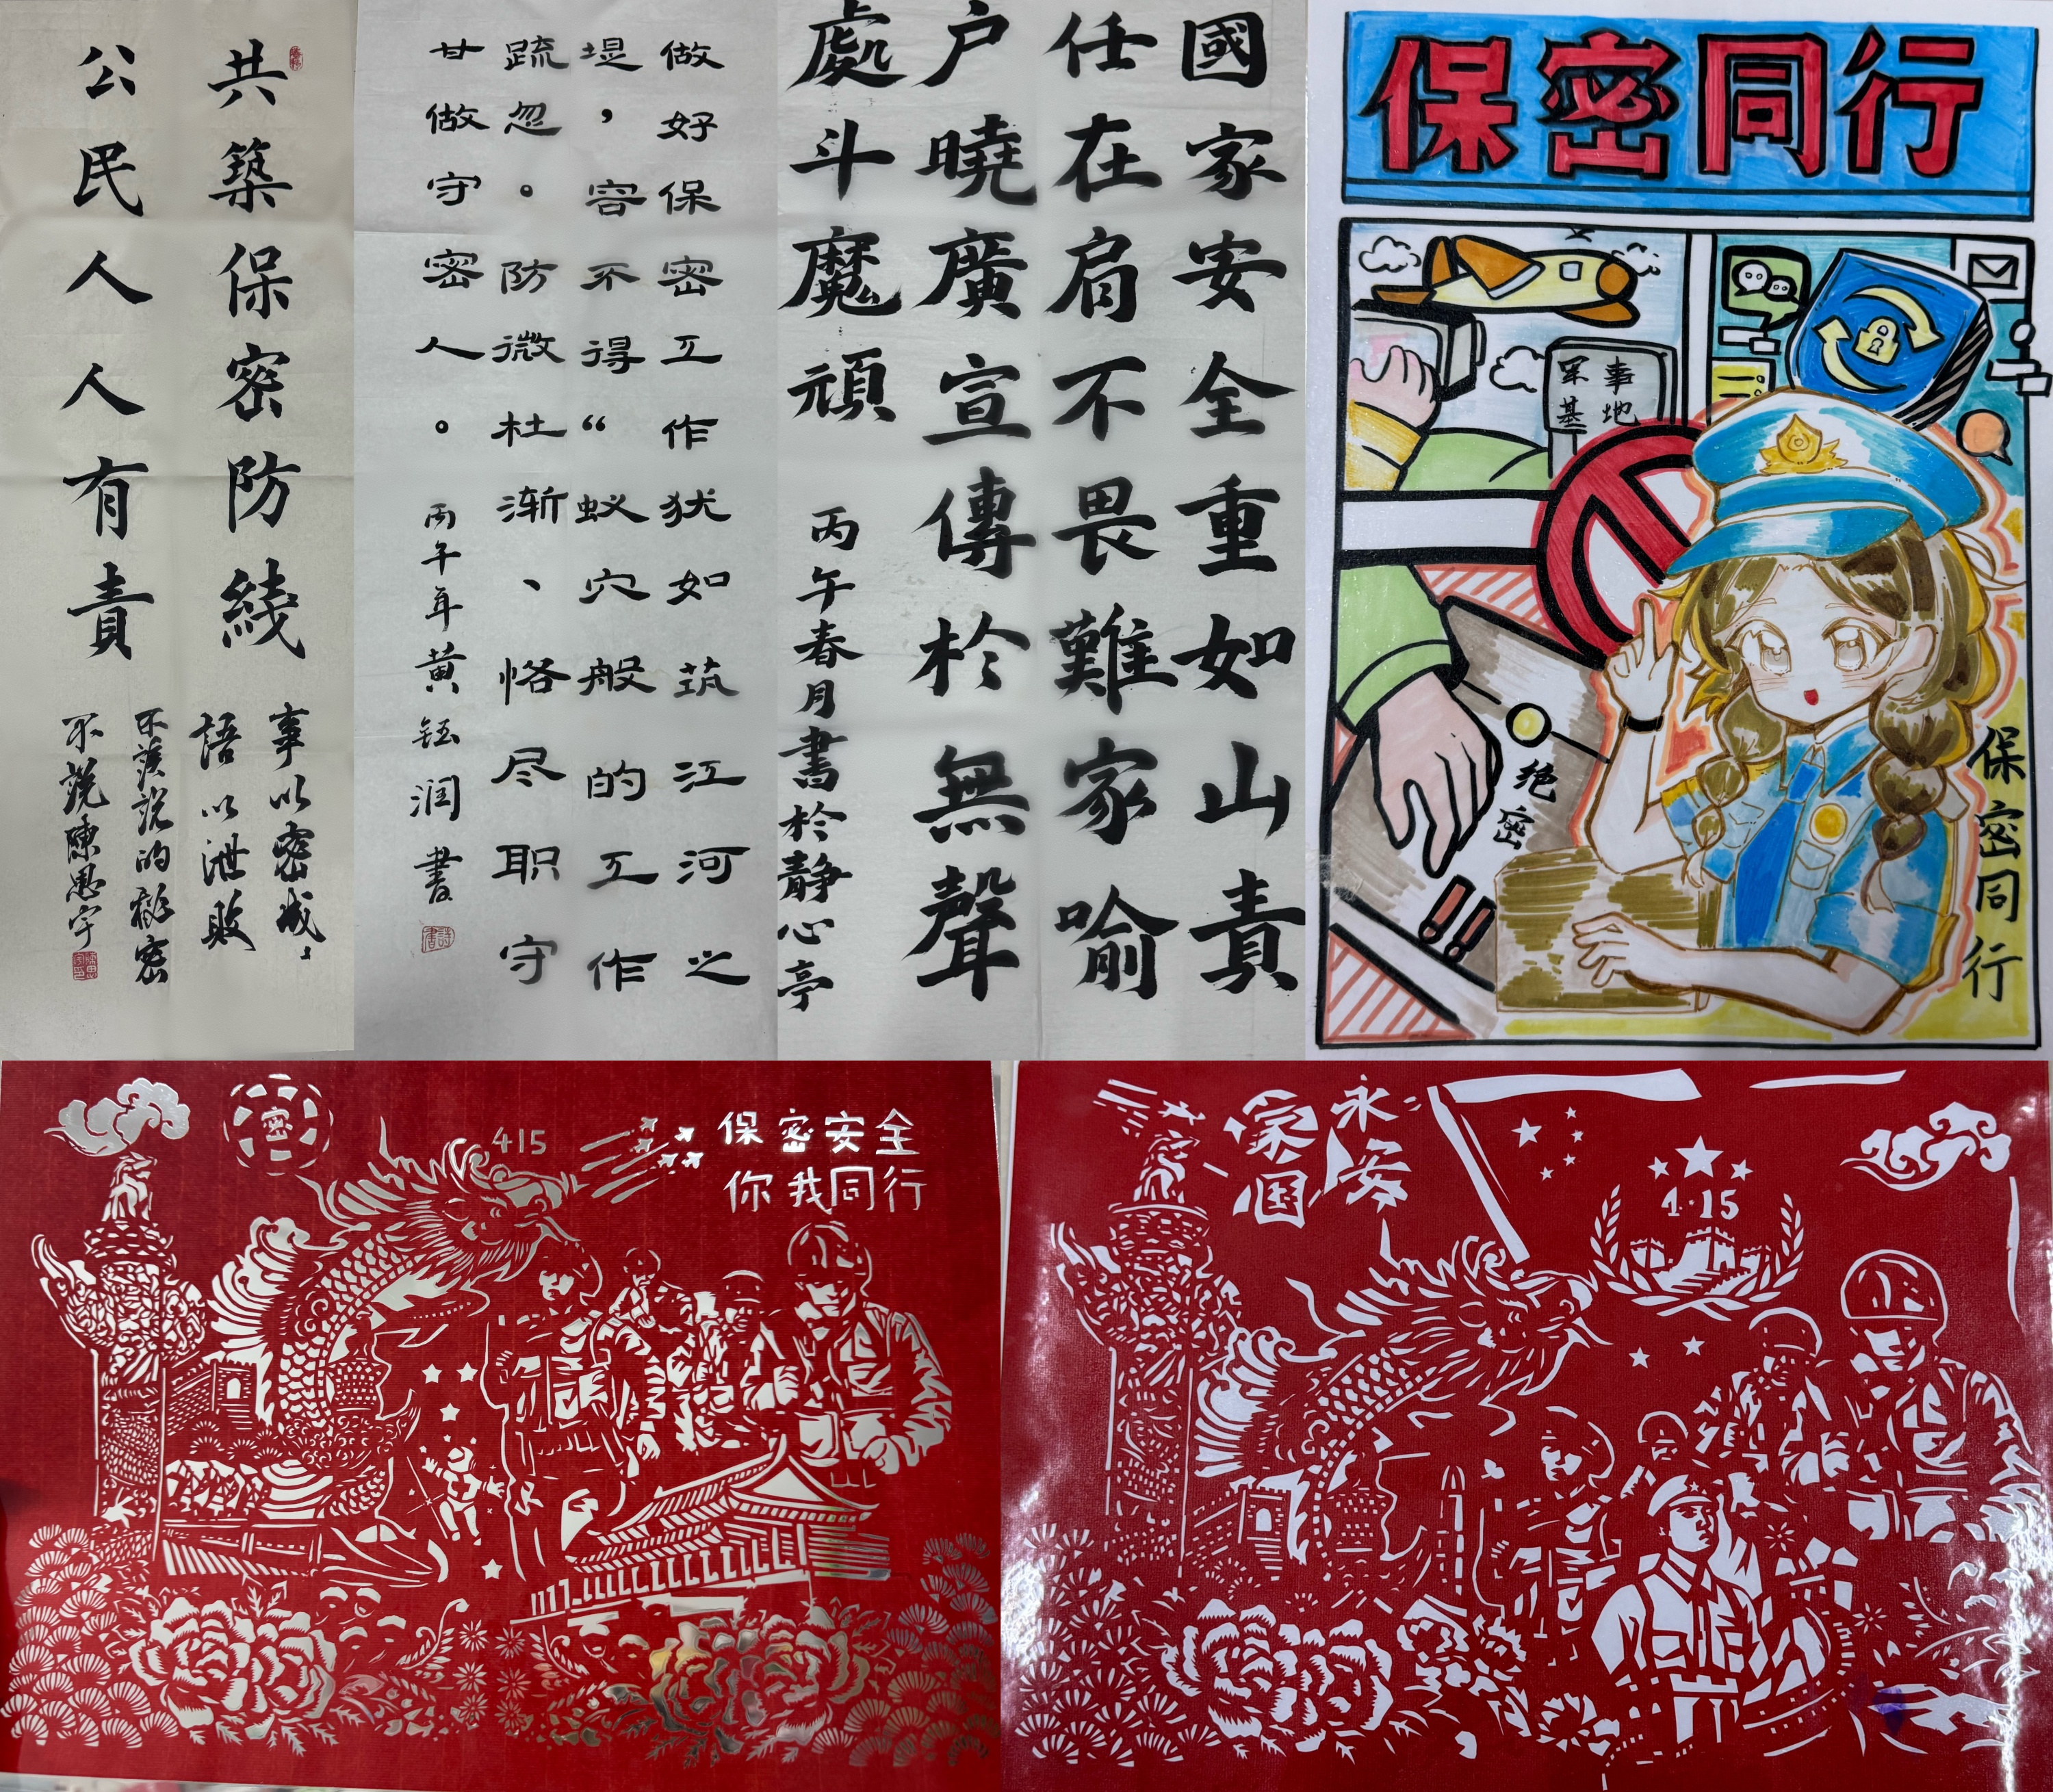 共築保密防綫
公民人人有責
事以密成
語以泄敗
不該說的秘密
不說陳思宇
做好保密工作犹如筑江河之
堤，容不得“蚁穴般的工作
疏忽。防微杜渐、恪尽职守
甘做守密人。
丙午年黄钰润书
國家安全重如山責
任在肩不畏難家喻
户曉廣宣傳於無聲
處斗魔頑
丙午春月書於靜心亭
保密同行
军事
基地
绝密
!!
保密同行
密
415
保密安全
你我同行
家国
永安
4·15